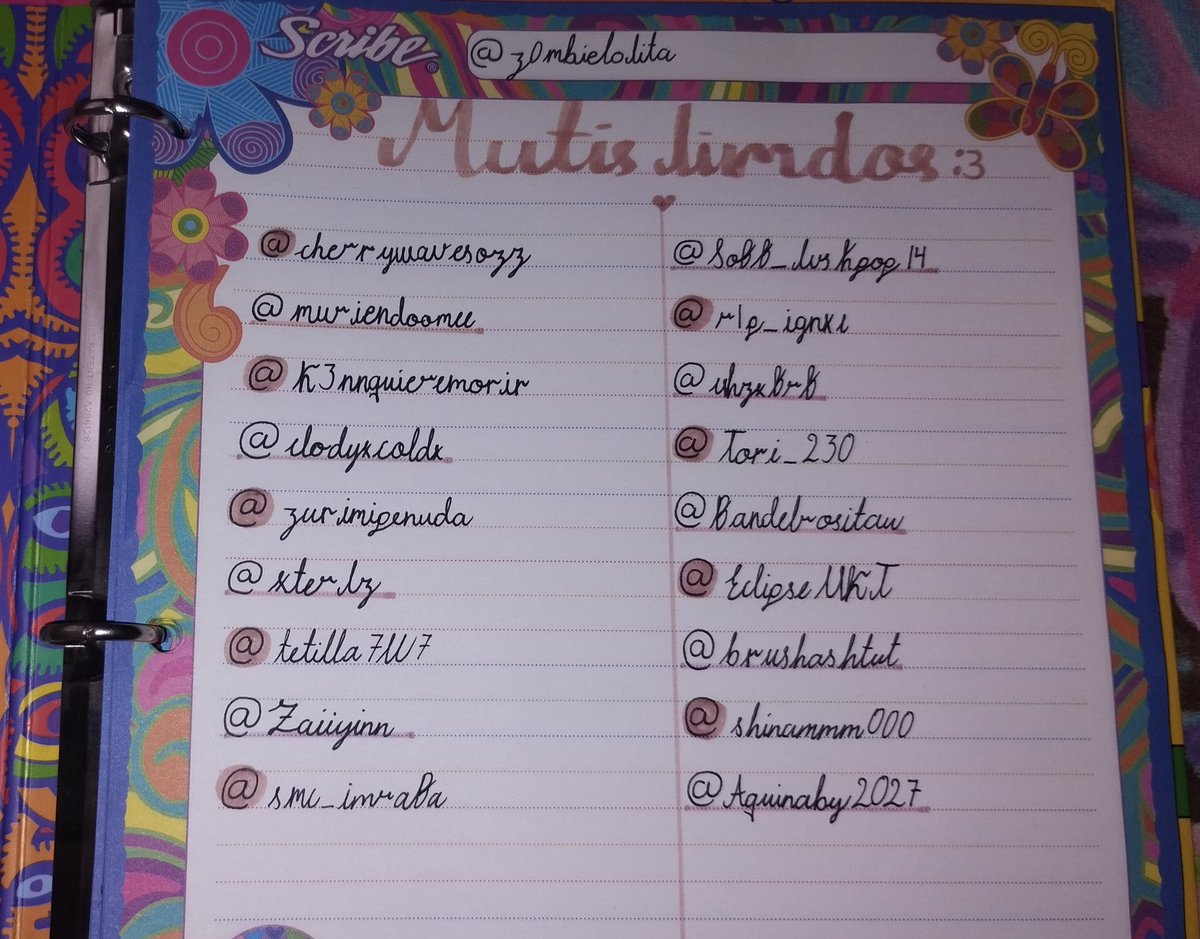 Scribe®
@z0mbielolita
Mutis lindos :3
@cherrywavesozz
@muriendoomee
@K3nnquieremorir
@clodyxcoldx
@zurimipenuda
@xterlz
@tetilla7W7
@Zaiiyinn
@smc_imvaba
@Sobb_luskpop14
@r1p_ignxc
@uhzxbrb
@Tori_230
@Bandebrositaw
@EclipseUKT
@brushashtut
@shinammm000
@Aquinaby2027